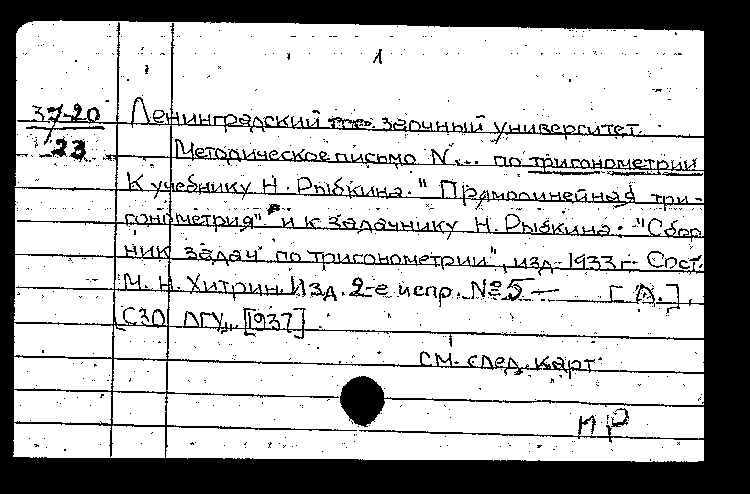 1
37-20
23
Ленинградский гос. заочный университет.
Методическое письмо N... по тригонометрии
К учебнику Н. Рыбкина. "Прямолинейная три-
гонометрия" и к задачнику Н. Рыбкина: "Сбор
ник задач по тригонометрии", изд. 1933 г. Сост.
М. Н. Хитрин. Изд. 2-е испр. №5 — [Л.],
СЗО ЛГУ, [1937]
см. след. карт.
МР